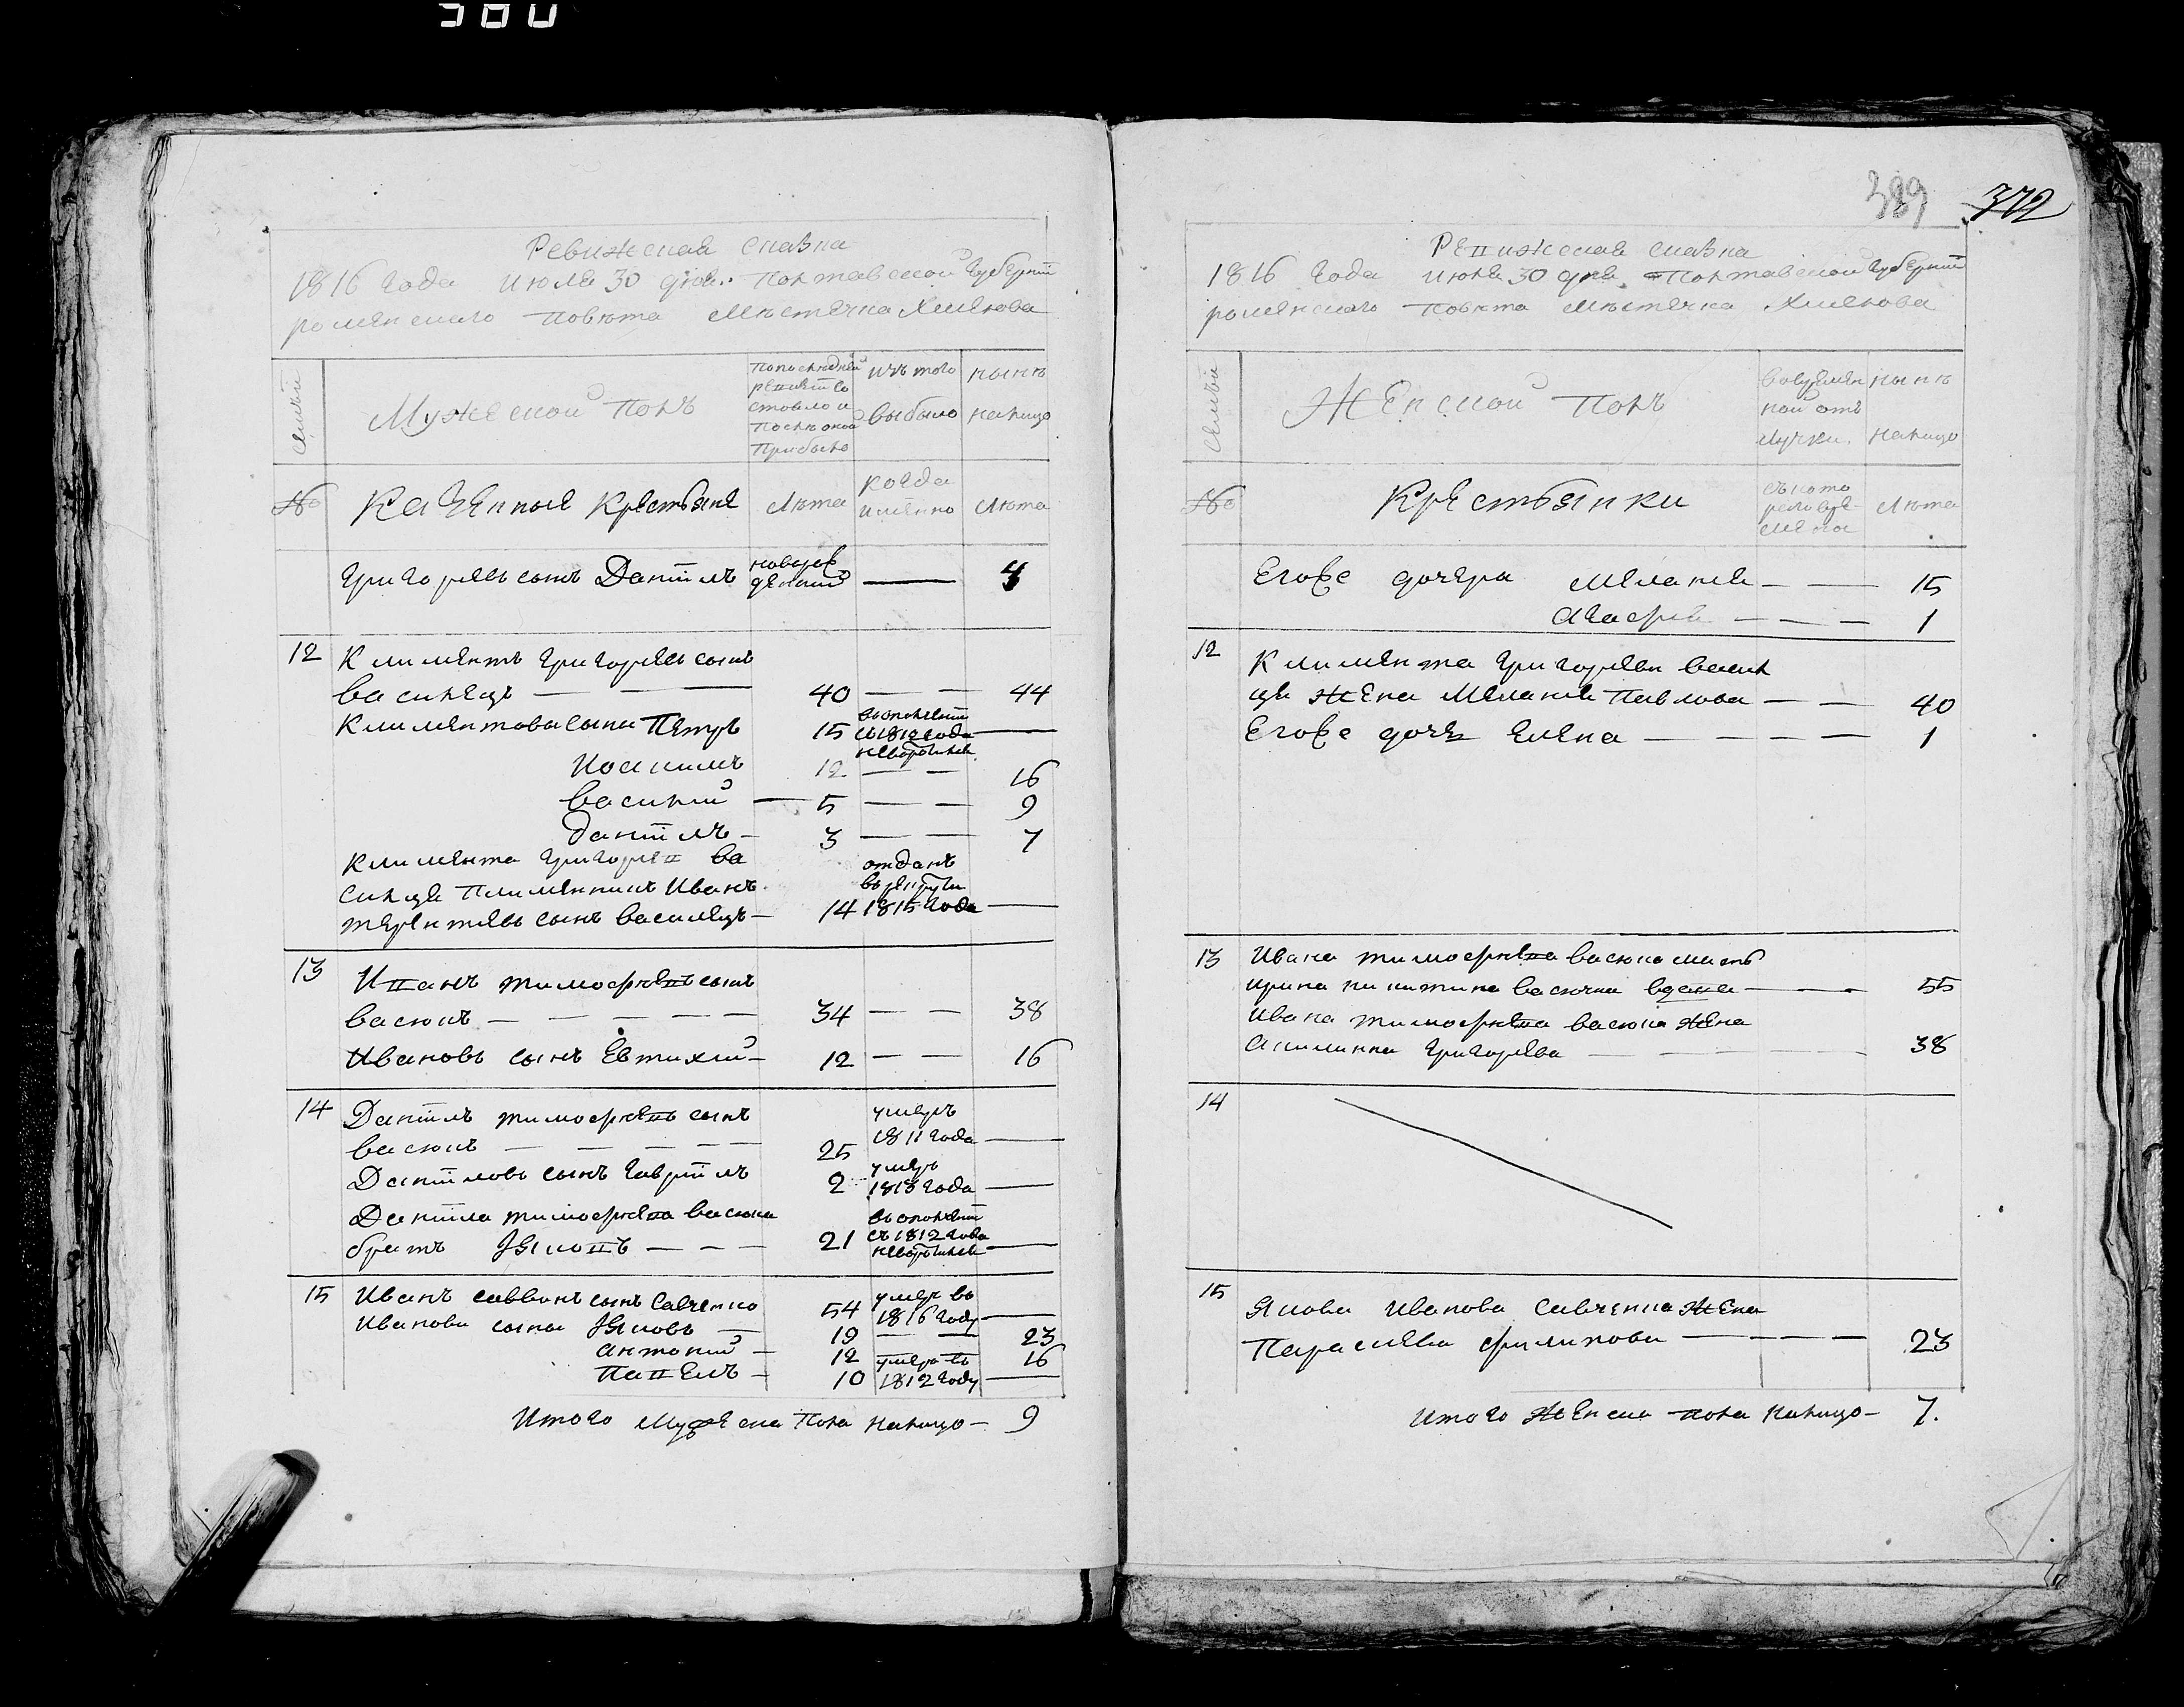 380
Ревижская сказка
1816 Года июля 30 дня. Полтавской Губернїи
роменского повѣта мѣстечка Хмелова
семьи
Мужеской полъ
по последней
ревизїи со
стояло и
после оной
прибыло
изъ того
выбыло
нынѣ
налицо
№
Казенные крестьяне
лѣта
когда
именно
лѣта
Григорьевъ сынъ Данїилъ
новорож
денный
— 4
12 Климентъ Григорьевъ сынъ
василецъ — — 40 — — 44
Климентовы сыны Петръ 15
въ ополченїи
съ 1812 года
невозвратился —
Иоакимъ 12 — — 16
Василий — 5 — — 9
Данїилъ — 3 — — 7
Климента Григорьева ва
сильца племянникъ Иванъ
терентьевъ сынъ василецъ — 14
отданъ
въ рекруты
1815 Года —
13 Иванъ тимофеевъ сынъ
васюкъ — — — — — 34 — — 38
Ивановъ сынъ Евтихий — 12 — — 16
14 Данїилъ тимофеевъ сынъ
васюкъ — — — — — 25
умеръ
1811 Года —
Данїиловъ сынъ Гаврїилъ 2
умеръ
1813 Года —
Данїила тимофеева васюка
братъ Яковъ — — — 21
въ ополченїи
съ 1812 Года
невозвратился —
15 Иванъ саввинъ сынъ Савченко 54
умеръ въ
1816 Году —
Ивановы сыны Яковъ — 19 — — 23
антоний — 12 — 16
Павелъ — 10
умеръ въ
1812 Году —
Итого мужеска пола налицо — 9
389 372
Ревижская сказка
1816 Года июля 30 дня. Полтавской Губернїи
роменского повѣта мѣстечка Хмелова
семьи
Женской полъ
во времен
ной от
лучки.
нынѣ
налицо
№
Крестьянки
съ кото
рого вре-
мени
лѣта
Егоже дочери Меланїя — — 15
Агафия — — — 1
12 Климента Григорьева василь
ца жена Меланїя Павлова — — 40
Егоже дочь Елена — — — — 1
13 Ивана тимофеева васюка мать
ирина никитина васючка вдова — — — 55
Ивана тимофеева васюка жена
Акилина Григорьева — — — 38
14
15 Якова Иванова Савченка жена
Параскева филипова — — — — 23
Итого женска пола налицо — 7.